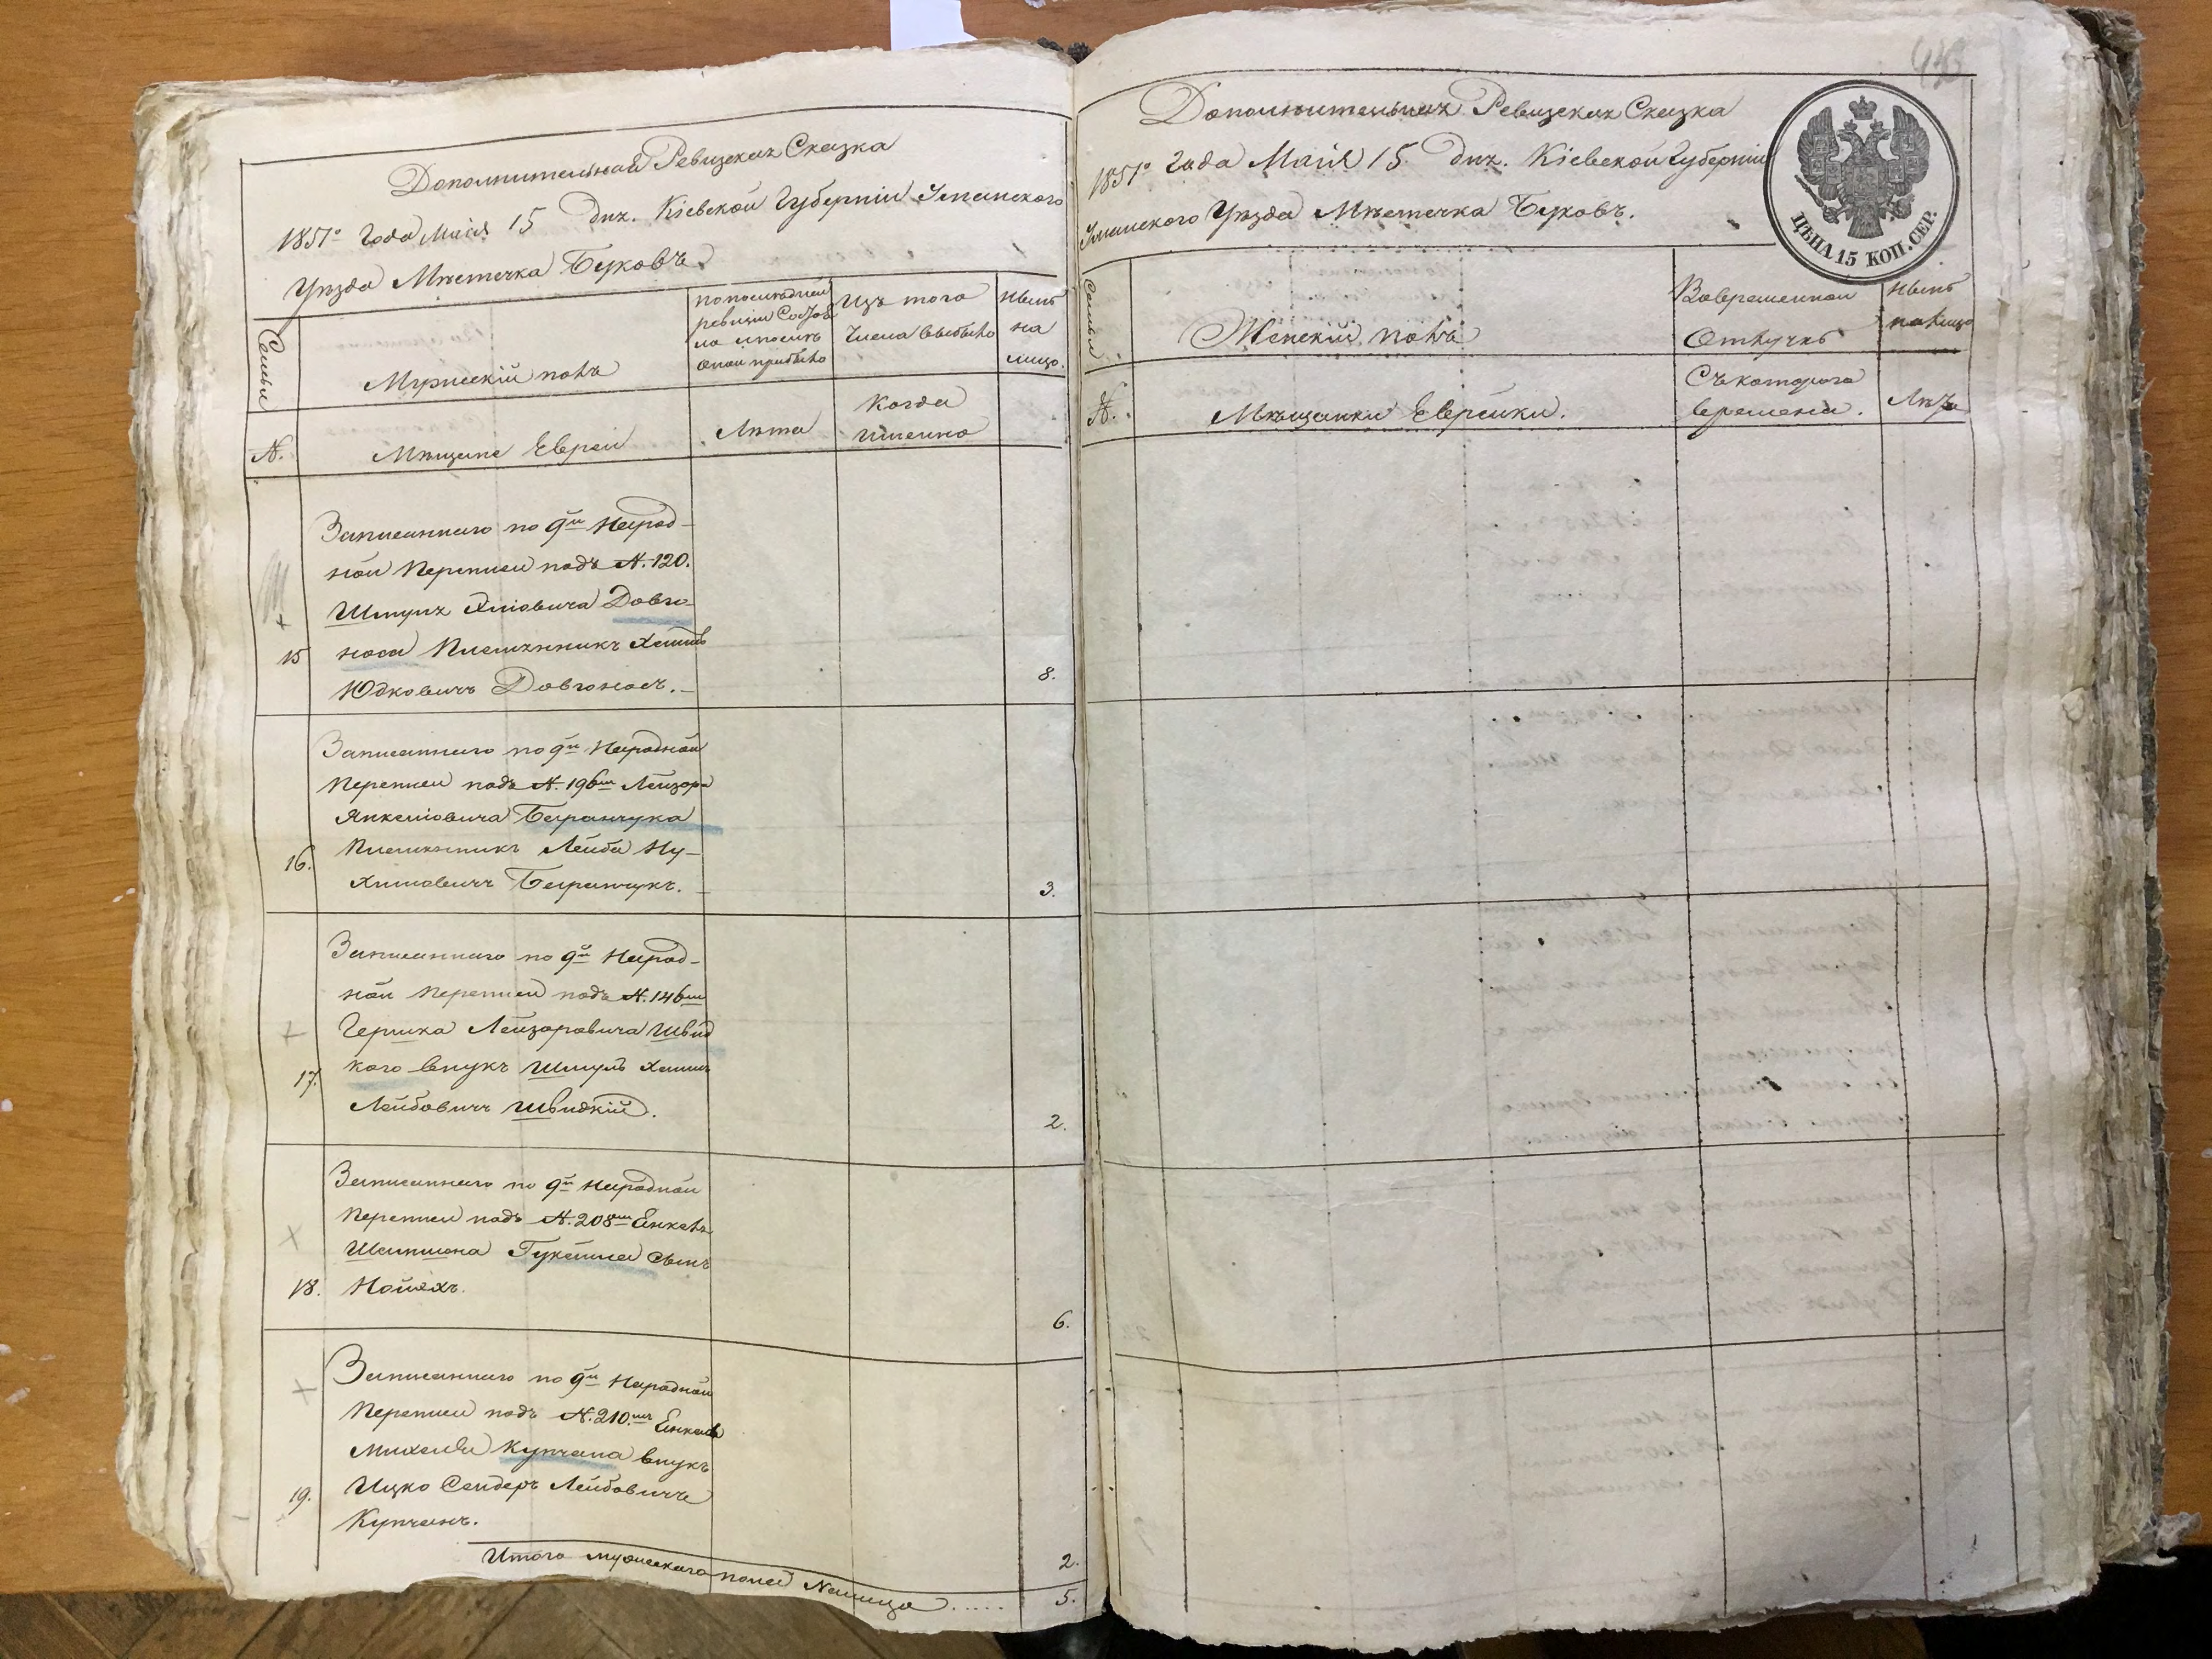 Дополнительная Ревизская Сказка
1851го Года Маия 15 дня. Кіевской Губерніи Уманского
Уѣзда Мѣстечка Буковъ
Семьи
Мужескій полъ
по последней
ревизіи Состоя
ло и после
оной прибыло
Изъ того
числа выбыло
Нынѣ
на
лицо.
N.
Мѣщане Евреи
Лѣта
Когда
именно
Записаннаго по 9й Народ-
ной переписи подъ N. 120.
Шмуля Довго-
носа племянникъ Хаимъ
15
Юдковичъ Довгоносъ.
8.
Записаннаго по 9й Народной
переписи подъ N. 196м Лейзора
Янкелiовича Баранчука
16.
племянникъ Лейба Ну-
химовичъ Баранчукъ.
3.
Записаннаго по 9й Народ-
ной переписи подъ N. 146м
Гершка Лейзоровича Швид
17.
кого внукъ Шмуль Хаимъ
Лейбовичъ Швидкій.
2.
Записаннаго по 9й Народной
переписи подъ N. 208м Енкель
Шапшона сынъ
18.
6.
Записаннаго по 9й Народной
переписи подъ N. 210м Енкеля
Михеля Купчана внукъ
19.
Ицко Сендеръ Лейбовичъ
Купчанъ.
2.
Итого мужескаго пола Налицо .....
5.
Дополнительная Ревизская Сказка
1851го Года Маия 15. дня. Кіевской Губерніи
Уманского Уѣзда Мѣстечка Буковъ.
ЦѢНА 15 КОП. СЕР.
Семьи
Женскій полъ
Вовременной
Отлучкѣ
Нынѣ
налицо
N.
Мѣщанки Еврейки.
Съ котораго
времени.
Лѣта